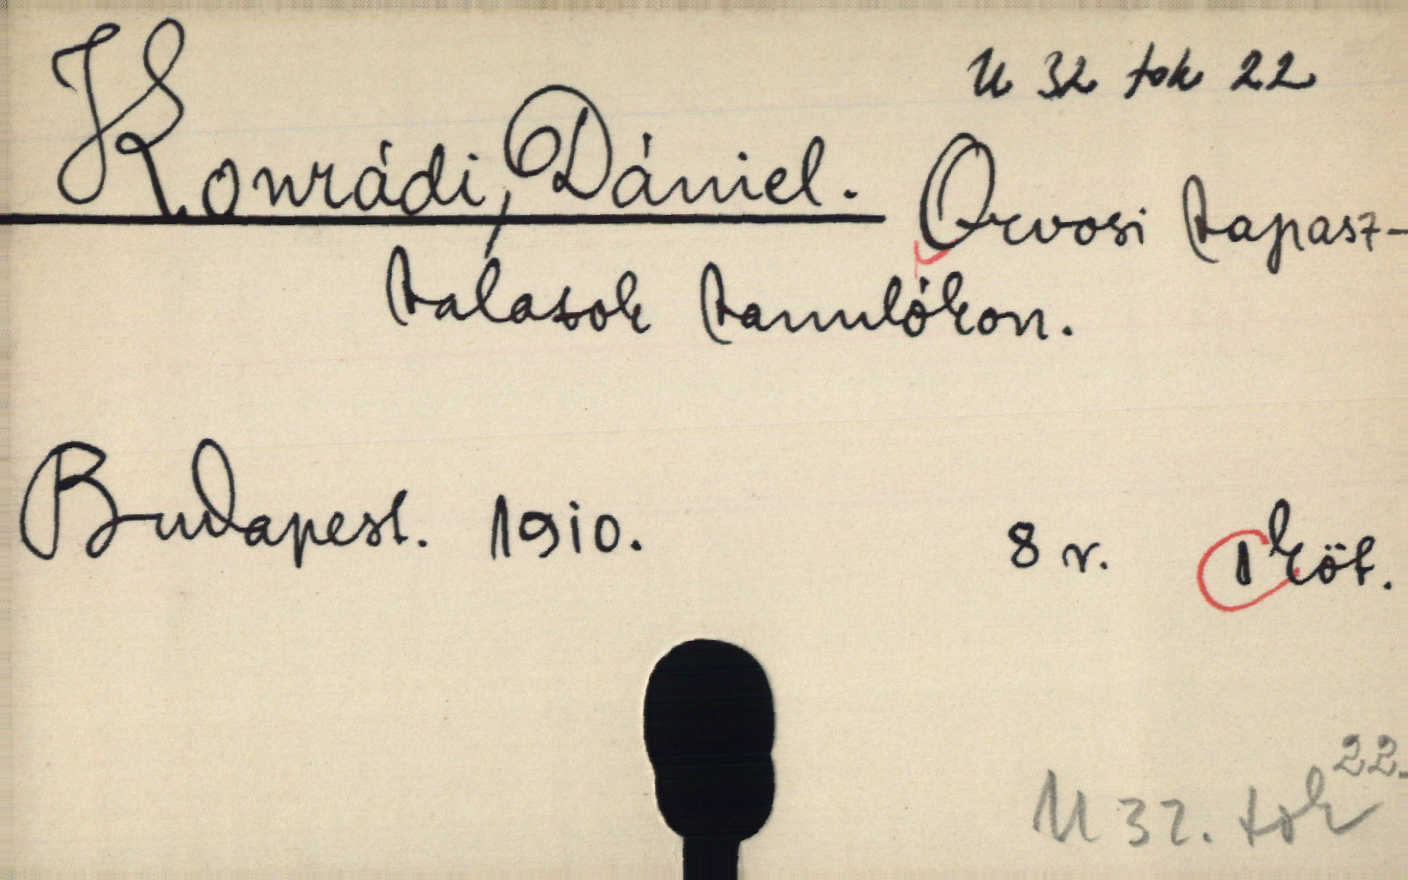 U 32 tok 22
Konrádi, Dániel. Orvosi tapasz-
talatok tanulókon.
Budapest. 1910. 8 r. 1 köt.
U 32. tok 22.